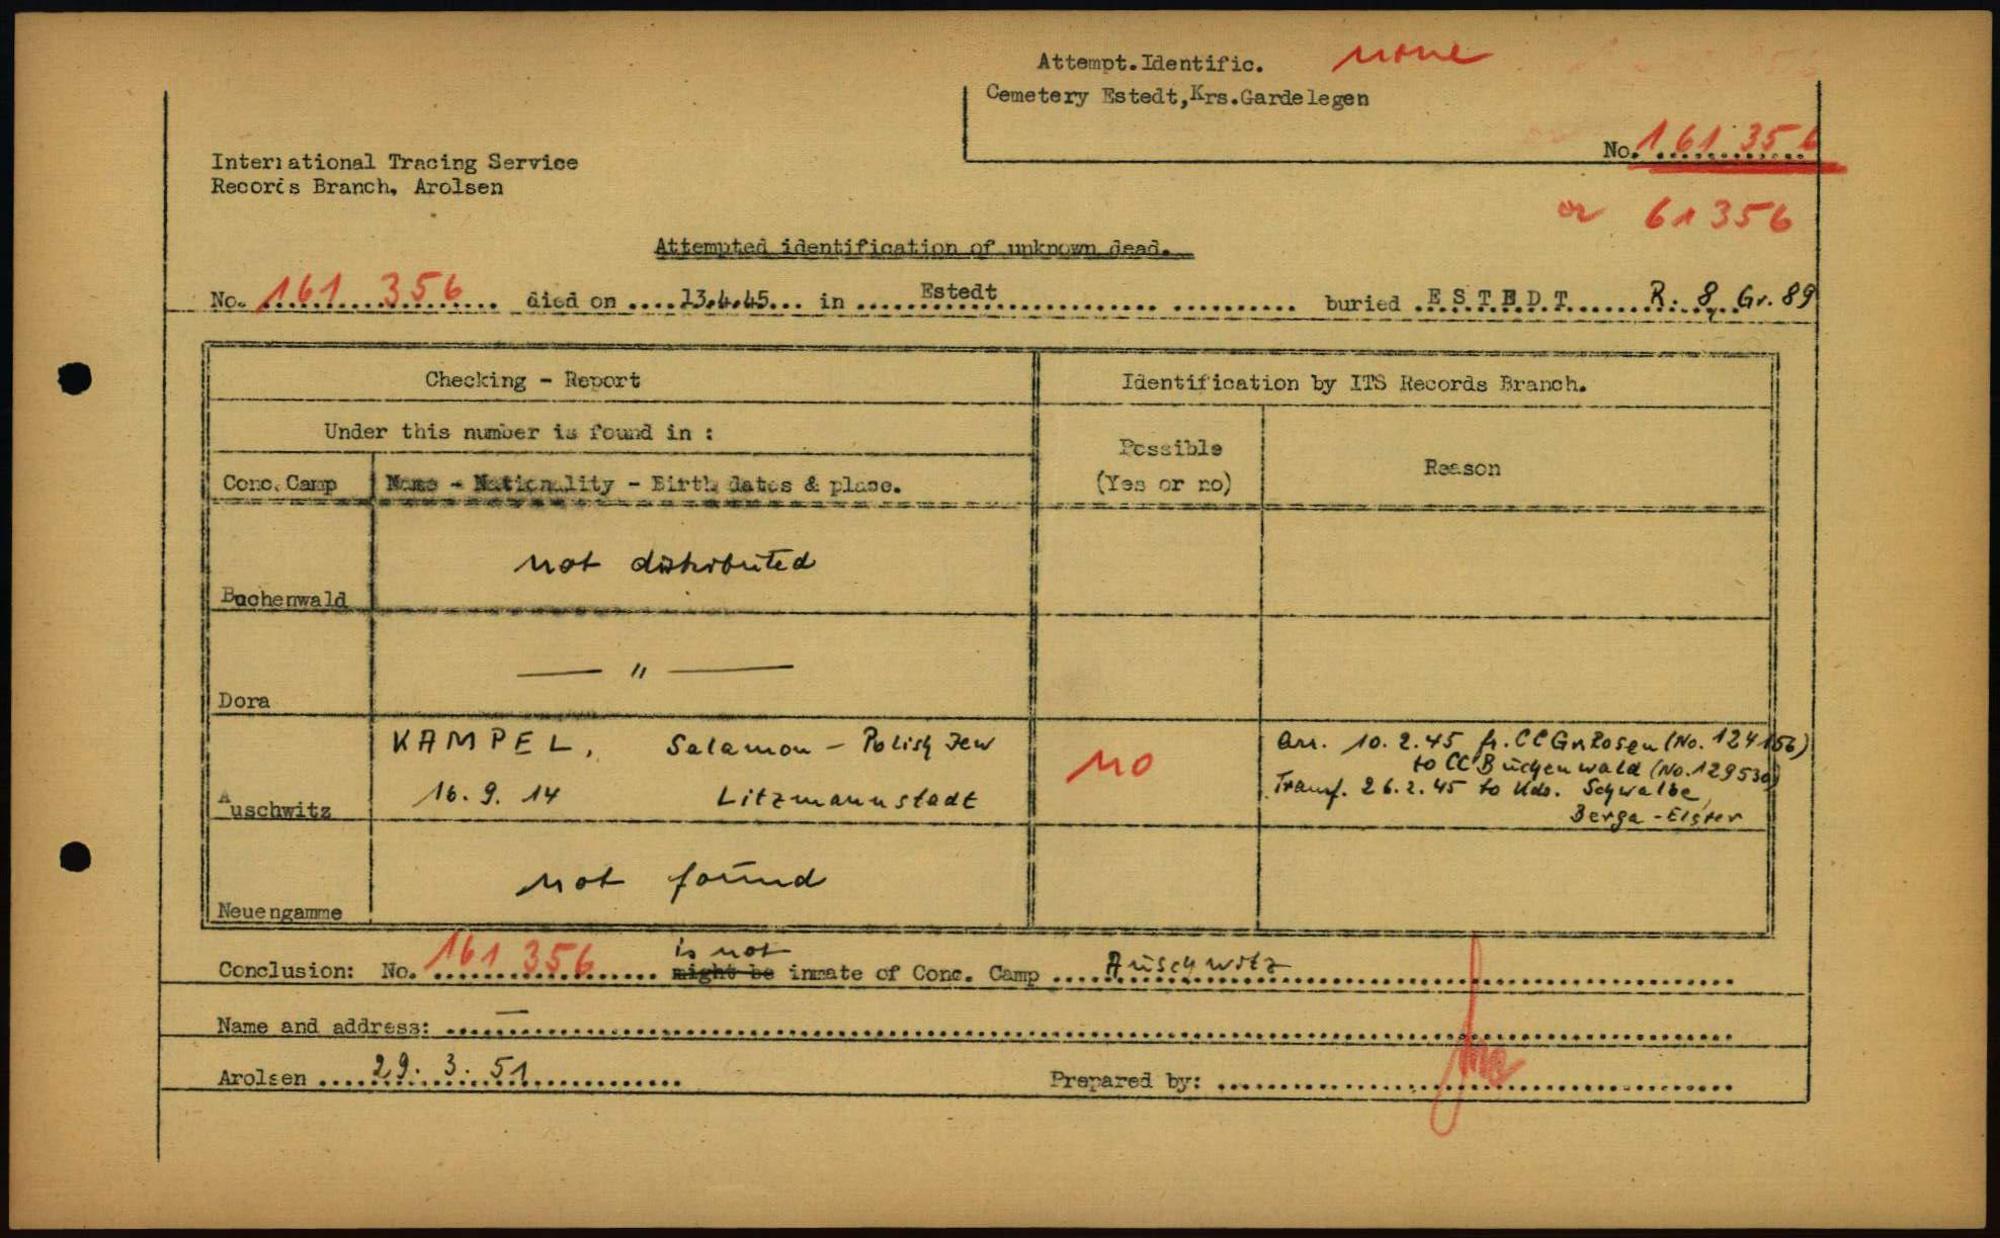 Attempt.Identific. none
Cemetery Estedt,Krs.Gardelegen
No. 161 356
or 61356
International Tracing Service
Records Branch, Arolsen
Attempted identification of unknown dead.
No. 161 356 died on ....13.4.45... in ..... Estedt ..... buried ESTEDT R. 8, Gr. 89
Checking - Report
Identification by ITS Records Branch.
Under this number is found in :
Possible
(Yes or no)
Reason
Conc. Camp
Name - Nationality - Birth dates & place.
not distributed
Buchenwald
— " —
Dora
KAMPEL, Salamon - Polish Jew
16. 9. 14 Litzmannstadt
Auschwitz
no
arr. 10. 2. 45 fr. CC GrRosen (No. 124156)
to CC Buchenwald (No. 129530)
Transf. 26. 2. 45 to Kdo. Schwalbe,
Berga - Elster
not found
Neuengamme
is not
Conclusion: No. 161 356 might be inmate of Conc. Camp Auschwitz
Name and address: —
Arolsen 29. 3. 51
Prepared by: